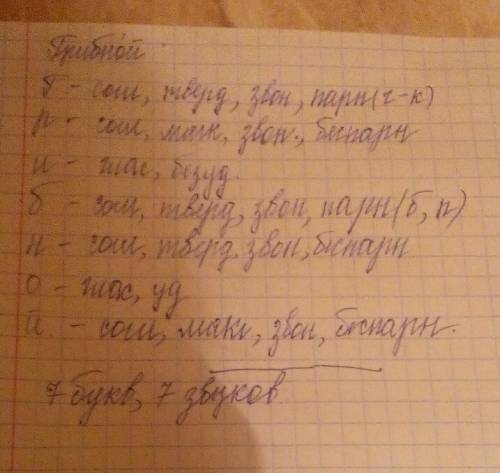 Грибно́й
г - согл, тверд, звон, парн(г-к)
р - согл, мягк, звон., беспарн
и - глас, безуд.
б - согл, тверд, звон, парн(б, п)
н - согл, тверд, звон, беспарн
о - глас, уд
й - согл, мягк, звон, беспарн.
7 букв, 7 звуков.